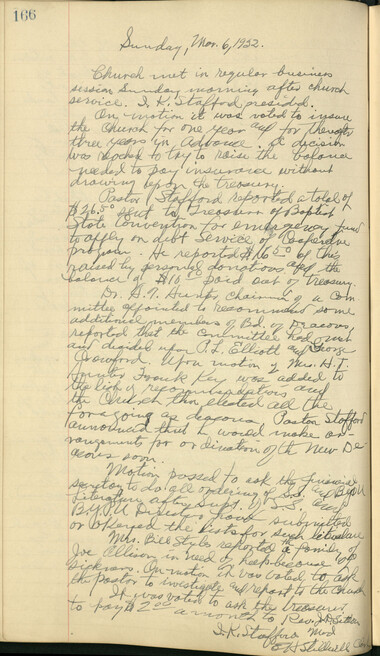 166
Sunday, Mar. 6, 1932.
Church met in regular business
session Sunday morning after church
service. I. K. Stafford presided.
On motion it was voted to insure
the Church for one year and for
three years in advance. A decision
was to try to raise the balance
needed to pay insurance without
drawing upon the treasury.
Pastor Stafford reported a total of
$26.50 sent to Treasurer of Baptist
State Convention for emergency fund
to apply on debt service of Cooperative
program. He reported $16.50 of this
raised by personal donations and the
balance of $10.00 paid out of treasury.
Dr. G. T. chairman of a Com
mittee appointed to recommend some
additional members of Bd. of Deacons,
reported that the committee had met
and decided upon P. L. Elliott and George
Crawford. Upon motion of Mrs. H. T.
Hunter Frank Key was added to
the list of recommendations and
the Church then elected all the
foregoing as deacons. Pastor Stafford
announced that he would make ar-
rangements for ordination of the New De
acons soon.
Motion passed to ask the financial
secretary to do all ordering of S.S. and B.Y.P.U
Literature after Supt. of S.S. and
B.Y.P.U Director have submitted
or the lists for such literature
Mrs. Bill Styles reported a family of
Joe Allison in need of help because of
Sickness. On motion it was voted to ask
the Pastor to investigate and report to the Church
It was voted to ask the treasurer
to pay $2.00 a month to Rev.
I. K. Stafford Mod
E H Stillwell Clerk